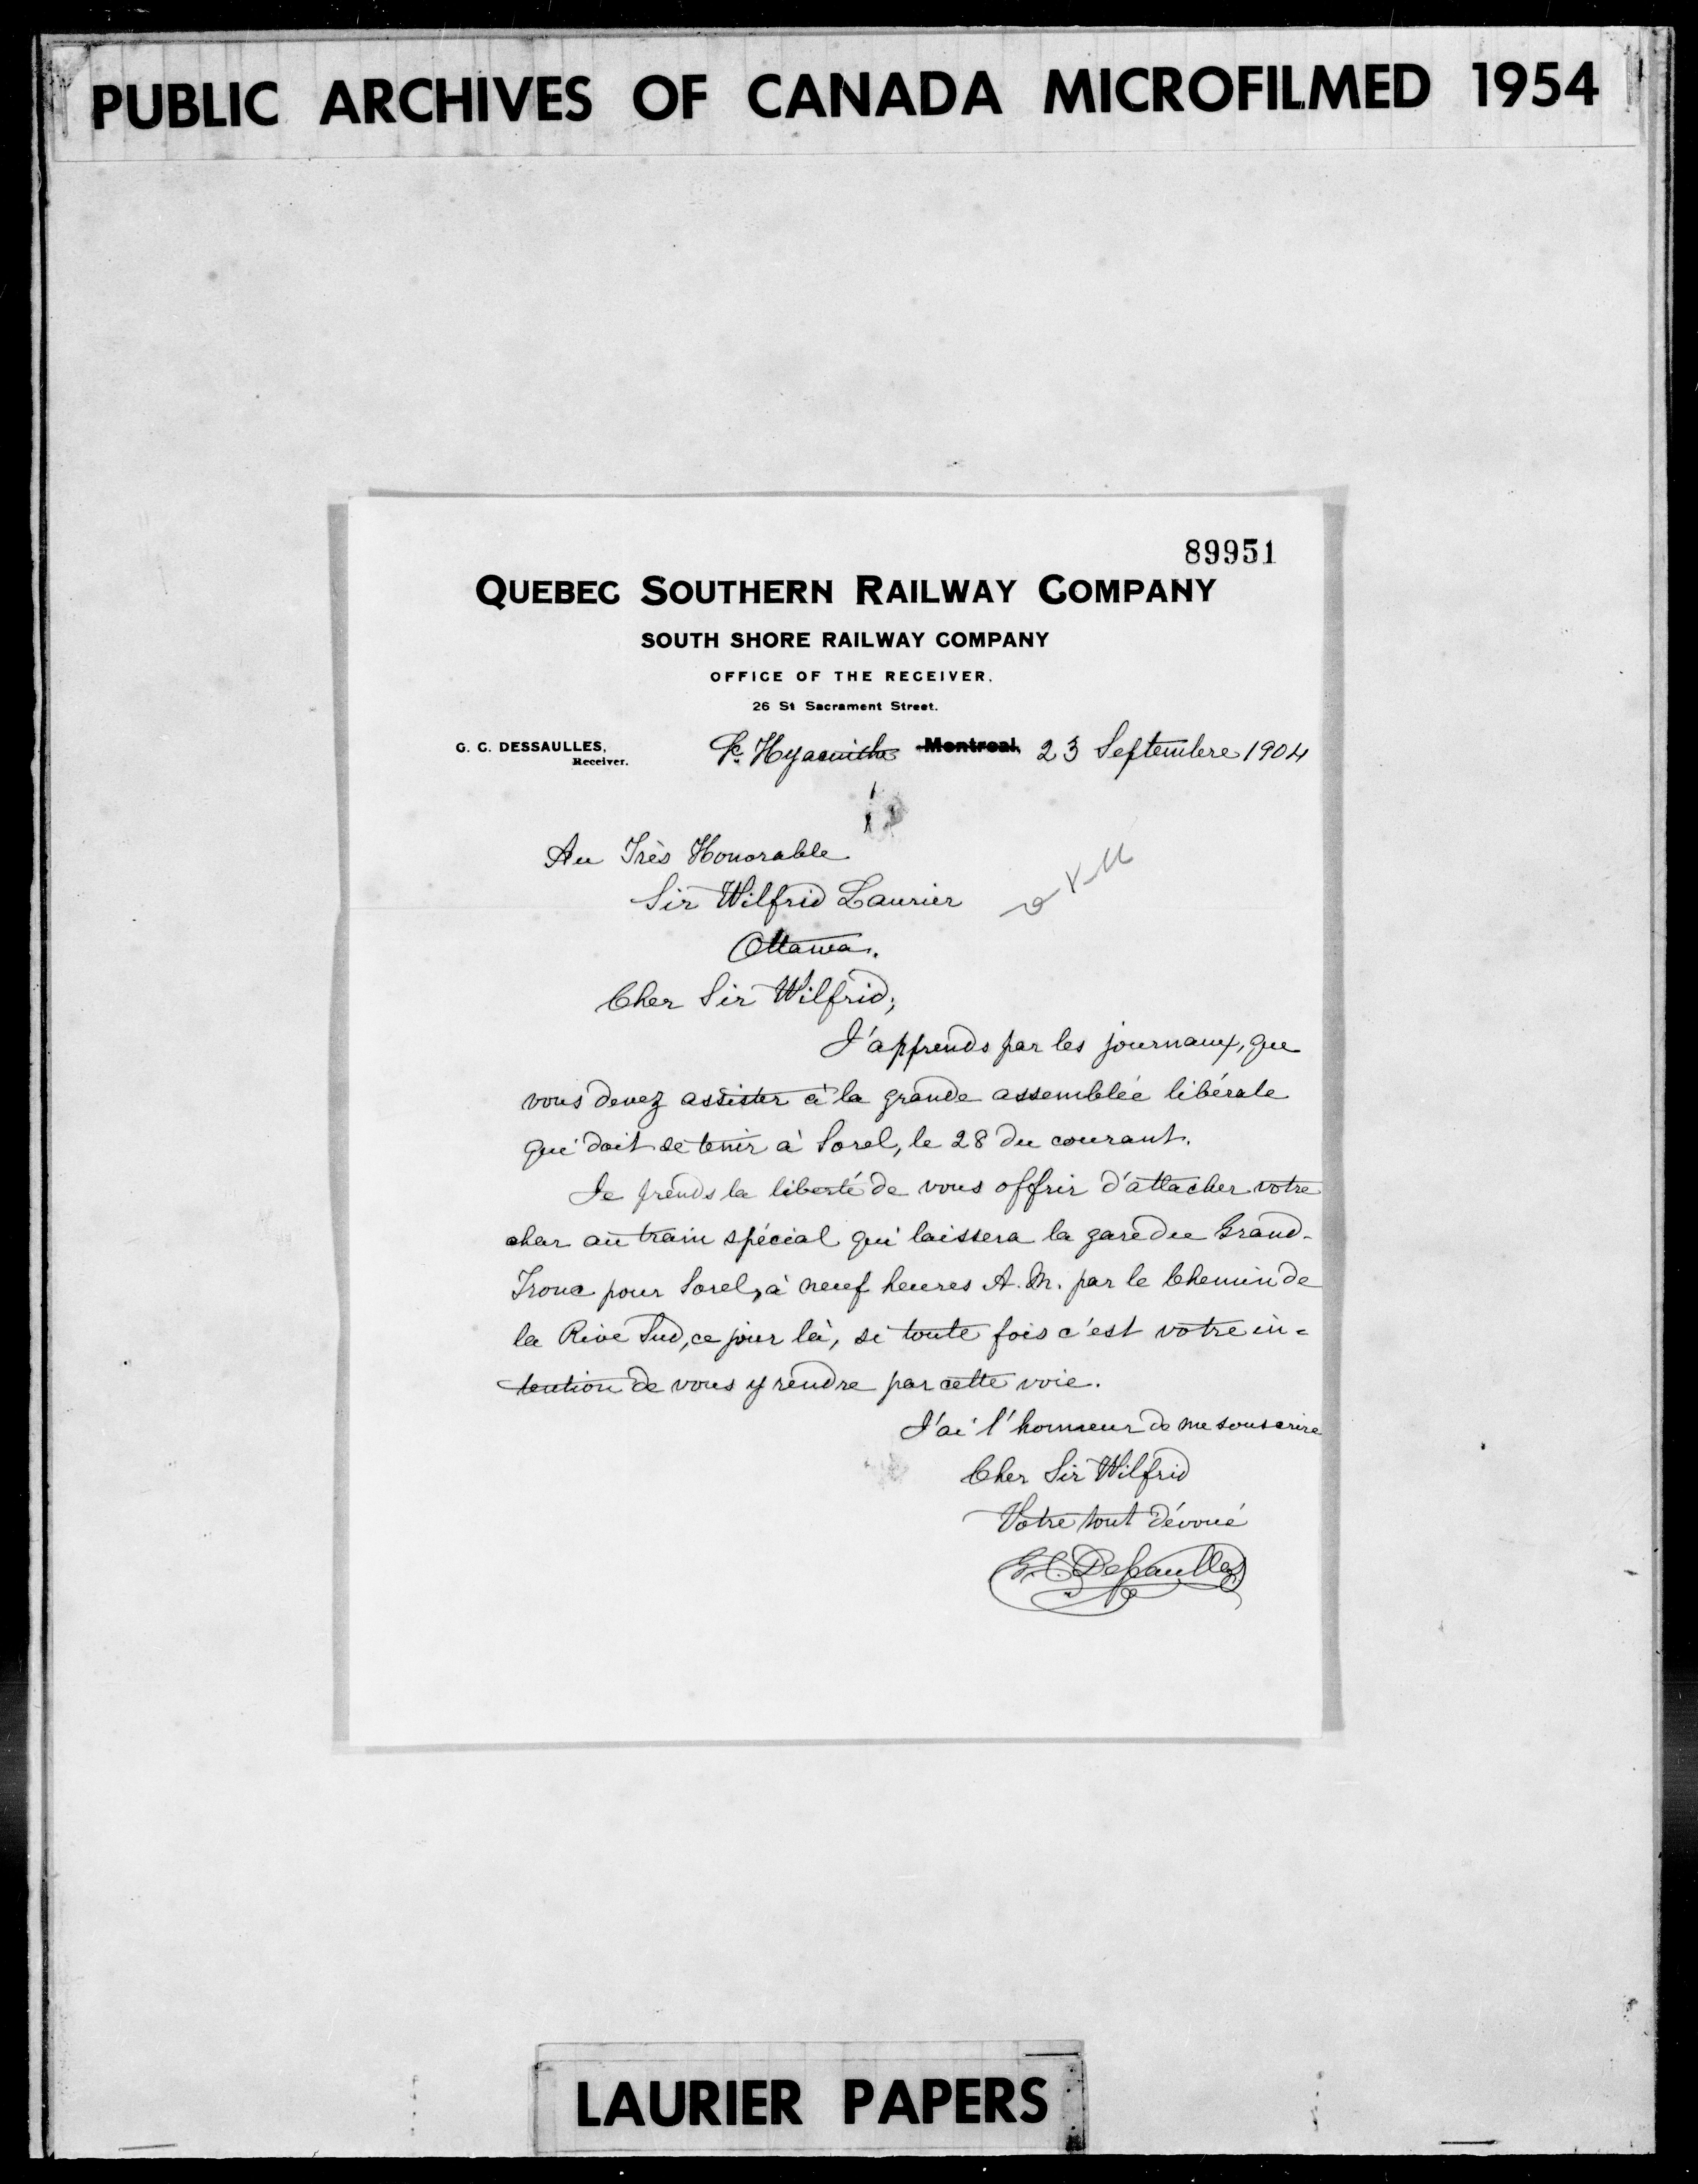 PUBLIC ARCHIVES OF CANADA MICROFILMED 1954
89951
QUEBEC SOUTHERN RAILWAY COMPANY
SOUTH SHORE RAILWAY COMPANY
OFFICE OF THE RECEIVER.
26 St Sacrament Street.
G. C. DESSAULLES,
Receiver.
St. Hyacinthe Montreal, 23 Septembre 1904
Au Très Honorable
Sir Wilfrid Laurier
Ottawa.
Cher Sir Wilfrid;
J'apprends par les journaux, que
vous devez assister à la grande assemblée libérale
qui doit se tenir à Sorel, le 28 du courant.
Je prends la liberté de vous offrir d'attacher votre
char au train spécial qui laissera la gare du Grand-
Tronc pour Sorel, à neuf heures A.M. par le Chemin de
la Rive Sud, ce jour là, si toute fois c'est votre in=
tention de vous y rendre par cette voie.
J'ai l'honneur de me souscrire
Cher Sir Wilfrid
Votre tout dévoué
G.C. Dessaulles
LAURIER PAPERS